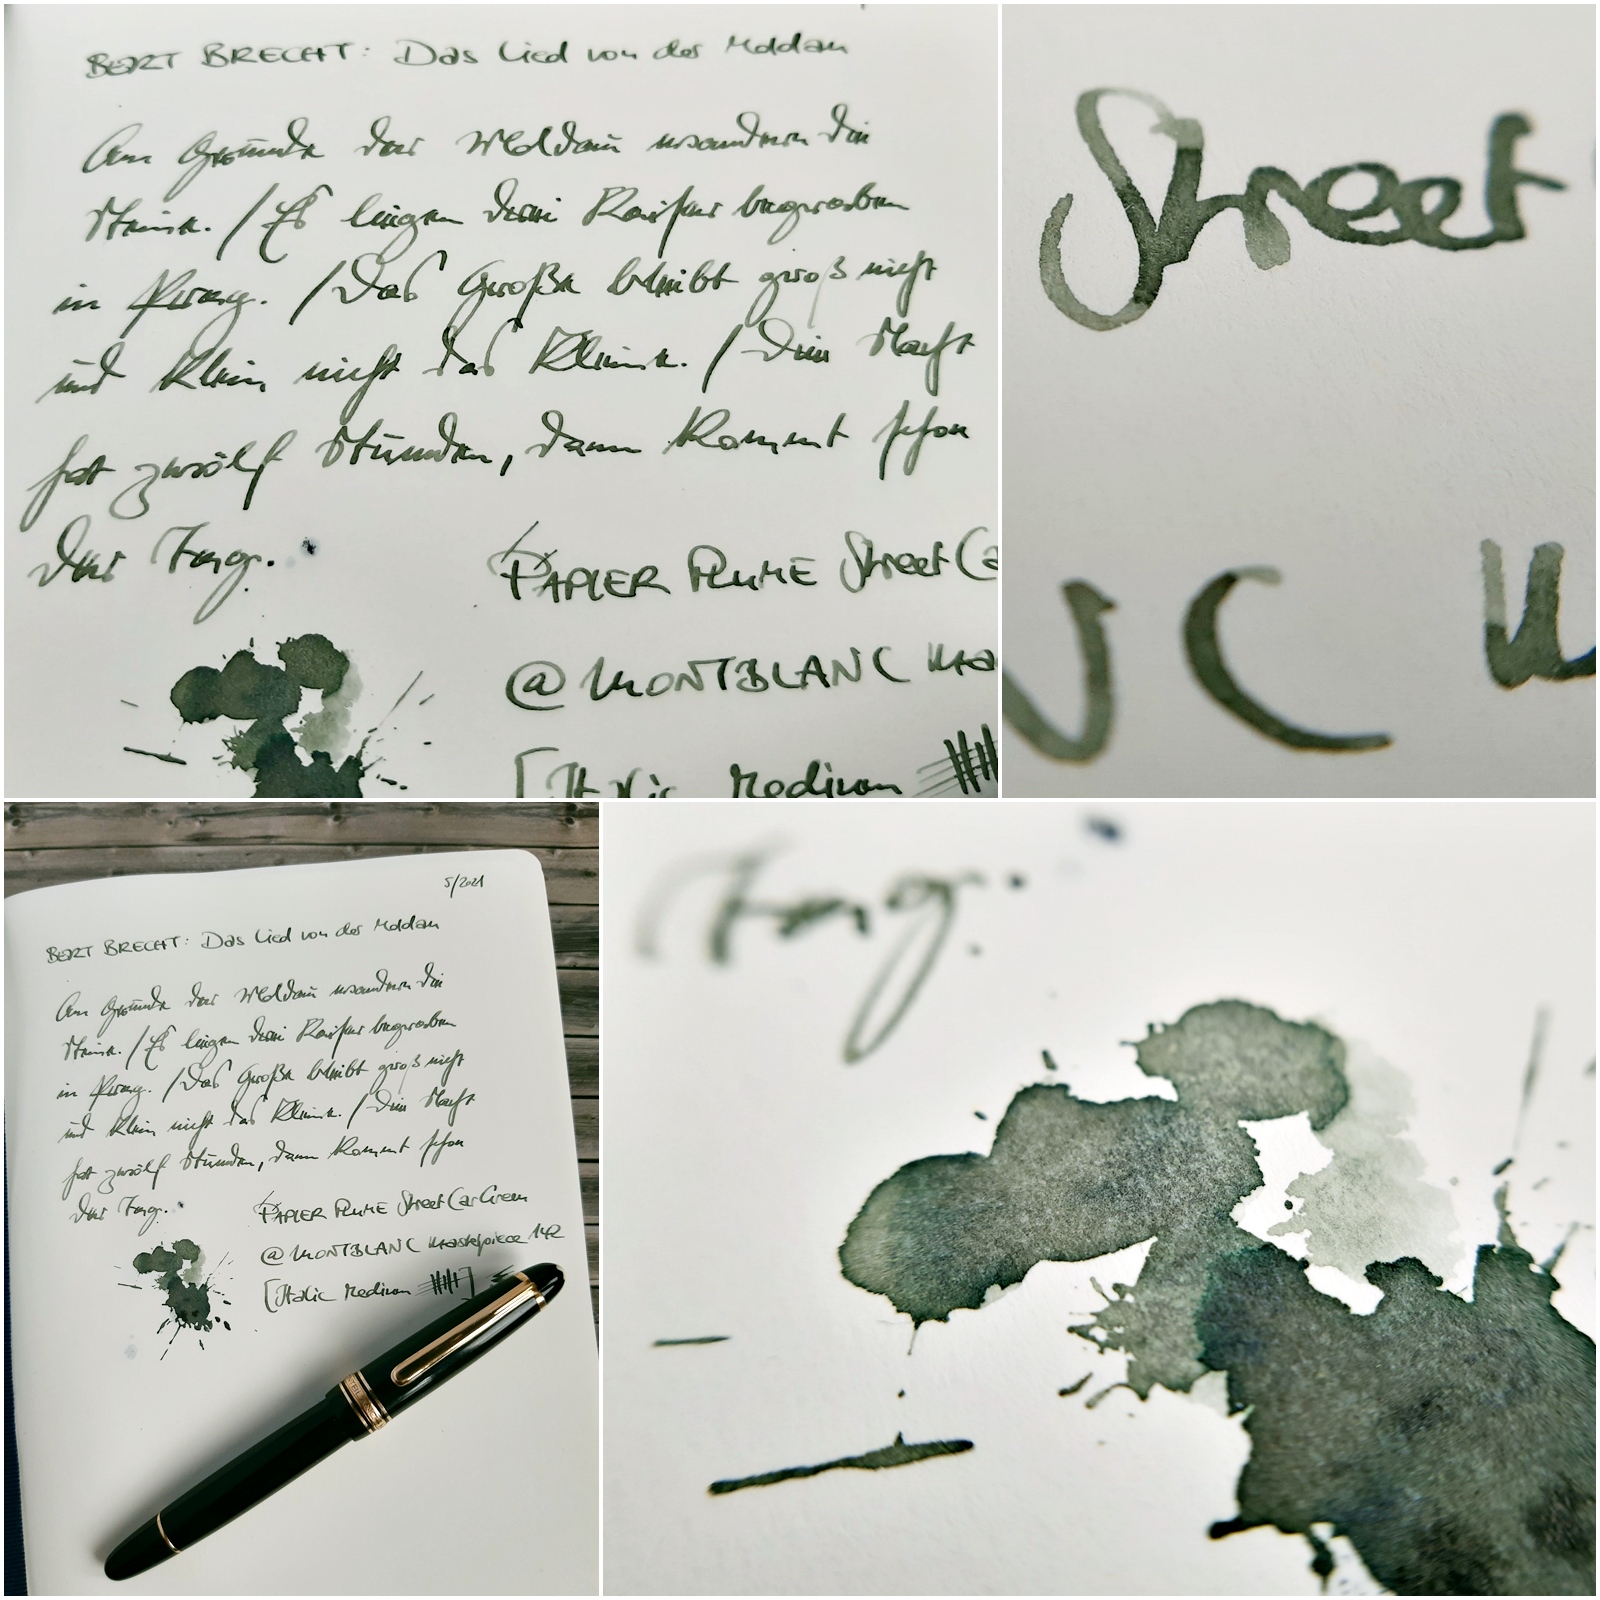 BERT BRECHT: Das Lied von der Moldau
Am Grunde der Moldau wandern die
Steine. / Es liegen drei Kaiser begraben
in Prag. / Das Große bleibt groß nicht
und klein nicht das Kleine. / Die Nacht
hat zwölf Stunden, dann kommt schon
der Tag.
PAPIER PLUME Street Ca
@ MONTBLANC Ma
[Italic Medium
Street
NC M
5/2021
BERT BRECHT: Das Lied von der Moldau
Am Grunde der Moldau wandern die
Steine. / Es liegen drei Kaiser begraben
in Prag. / Das Große bleibt groß nicht
und klein nicht das Kleine. / Die Nacht
hat zwölf Stunden, dann kommt schon
der Tag.
PAPIER PLUME StreetCarGreen
@ MONTBLANC Masterpiece 149
[Italic Medium ]
Tag.